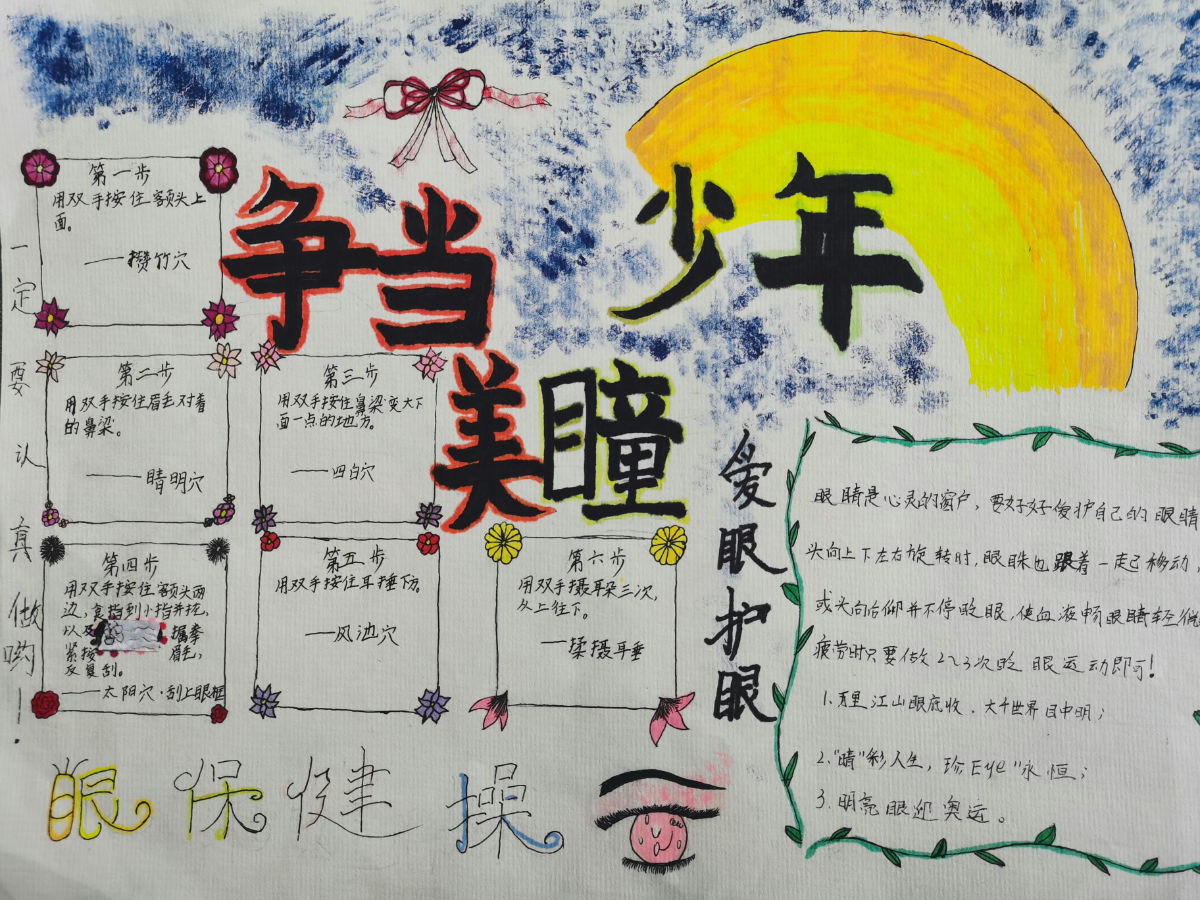 争当
美瞳
少年
一定要认真做哟！
第一步
用双手按住额头上
面。
——攒竹穴
第二步
用双手按住眉毛对着
的鼻梁。
——睛明穴
第三步
用双手按住鼻梁变大下
面一点的地方。
——四白穴
第四步
用双手按住额头两
边，食指到小指并拢，
以及 握拳
紧按 眉毛，
反复刮。
——太阳穴·刮上眼框
第五步
用双手按住耳捶下方。
——风池穴
第六步
用双手摄耳朵三次，
从上往下。
——揉摄耳垂
眼保健操
爱眼护眼
眼睛是心灵的窗户，要好好爱护自己的眼睛
头向上下左右旋转时，眼珠也跟着一起移动，
或头向后仰并不停眨眼，使血液畅眼睛轻微
疲劳时只要做2~3次眨眼运动即可！
1.里江山眼底收．大千世界目中明；
2."睛"彩人生，珍Eye"永恒；
3.明亮眼迎奥运。